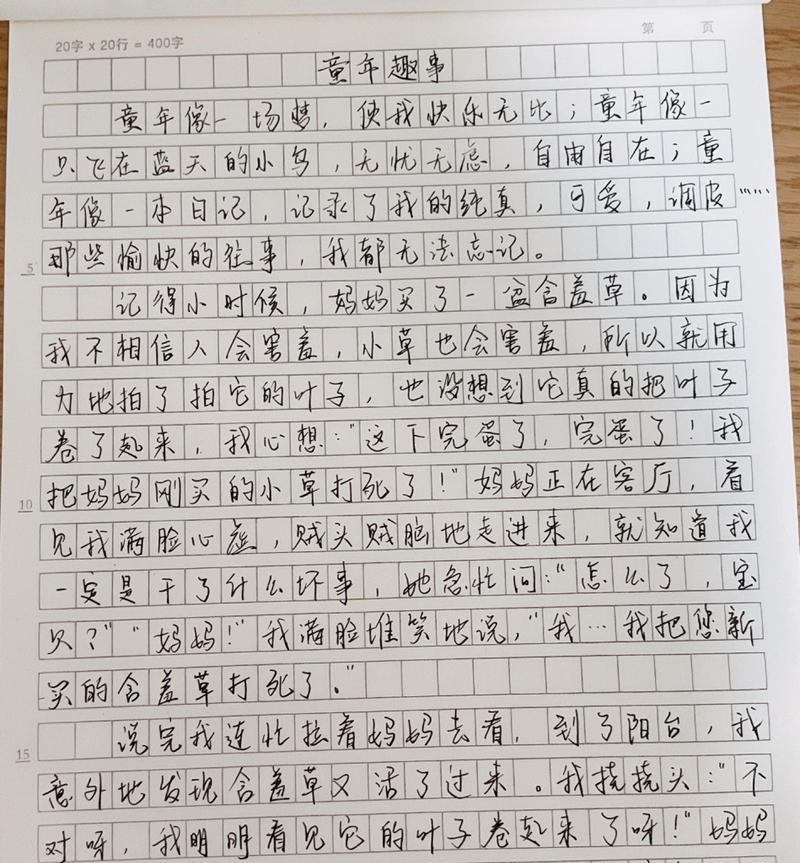 20字 x 20行 = 400字
第 页
童年趣事
童年像一场梦，使我快乐无比；童年像一
只飞在蓝天的小鸟，无忧无虑，自由自在；童
年像一本日记，记录了我的纯真，可爱，调皮……
5 那些愉快的往事，我都无法忘记。
记得小时候，妈妈买了一盆含羞草。因为
我不相信人会害羞，小草也会害羞，所以就用
力地拍了拍它的叶子，也没想到它真的把叶子
卷了起来，我心想："这下完蛋了，完蛋了！我
10 把妈妈刚买的小草打死了！"妈妈正在客厅，看
见我满脸心虚，贼头贼脑地走进来，就知道我
一定是干了什么坏事，她急忙问："怎么了，宝
贝？""妈妈！"我满脸堆笑地说，"我…我把您新
买的含羞草打死了。"
15 说完我连忙拉着妈妈去看，到了阳台，我
意外地发现含羞草又活了过来。我挠挠头："不
对呀，我明明看见它的叶子卷起来了呀！"妈妈